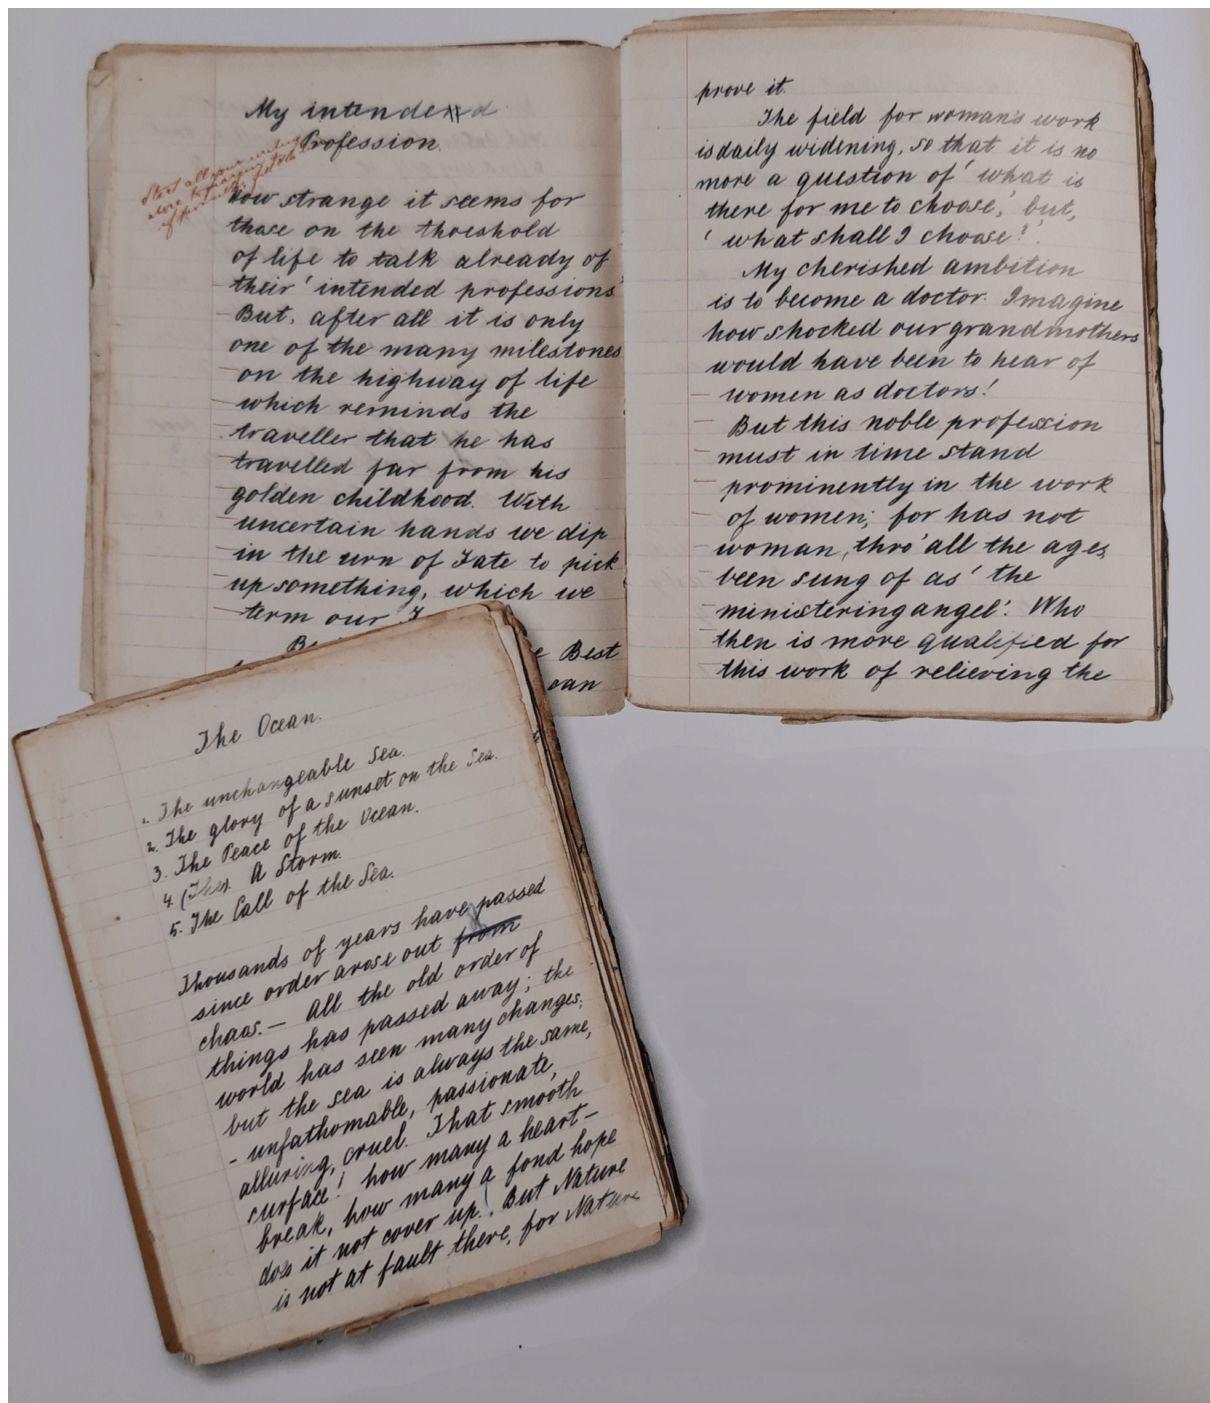 My intended
Profession.
Start all your writing
How strange it seems for
those on the threshold
of life to talk already of
their 'intended professions'
But, after all it is only
one of the many milestones
on the highway of life
which reminds the
traveller that he has
travelled far from his
golden childhood. With
uncertain hands we dip
in the urn of Fate to pick
up something, which we
term our
Best
can
prove it.
The field for woman's work
is daily widening, so that it is no
more a question of 'what is
there for me to choose,' but,
'what shall I choose?'.
My cherished ambition
is to become a doctor. Imagine
how shocked our grandmothers
would have been to hear of
women as doctors!
But this noble profession
must in time stand
prominently in the work
of women; for has not
woman, thro' all the ages
been sung of as 'the
ministering angel'. Who
then is more qualified for
this work of relieving the
The Ocean.
1. The unchangeable Sea.
2. The glory of a sunset on the Sea.
3. The Peace of the Ocean.
4. (The) A Storm.
5. The Call of the Sea.
Thousands of years have passed
since order arose out from
chaos. — All the old order of
things has passed away; the
world has seen many changes;
but the sea is always the same,
- unfathomable, passionate,
alluring, cruel. That smooth
surface! how many a heart-
break, how many a fond hope
does it not cover up! But Nature
is not at fault there, for Nature